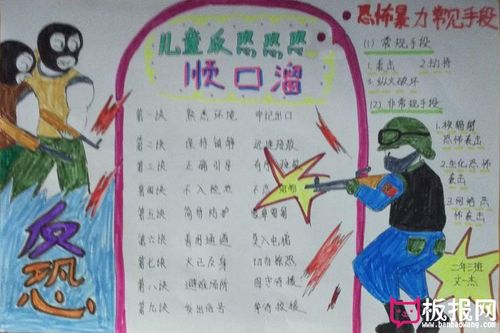 儿童反恐
顺口溜
第一块 熟悉环境 牢记出口
第二块 保持镇静 迅速撤散
第三块 正确引导
第四块 不入险地 不
第五块 简易防护
第六块 善用通道 莫入电梯
第七块 火已及身 切勿惊恐
第八块 避难场所 固守待援
第九块 发出信号
反恐
恐怖暴力常见手段
(1) 常规手段
1.袭击 2.劫持
3.纵火破坏
(2) 非常规手段
1.核辐射
恐怖袭击
2.生化恐怖
袭击
3.网络恐
怖袭击
二年三班
板报网
www.banbaowang.com